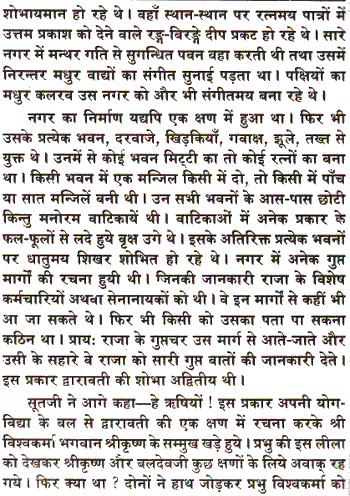 शोभायमान हो रहे थे। वहाँ स्थान-स्थान पर रत्नमय पात्रों में
उत्तम प्रकाश को देने वाले रङ्ग-बिरङ्गे दीप प्रकट हो रहे थे। सारे
नगर में मन्थर गति से सुगन्धित पवन बहा करती थी तथा उसमें
निरन्तर मधुर वाद्यों का संगीत सुनाई पड़ता था। पक्षियों का
मधुर कलरव उस नगर को और भी संगीतमय बना रहे थे।
नगर का निर्माण यद्यपि एक क्षण में हुआ था। फिर भी
उसके प्रत्येक भवन, दरवाजे, खिड़कियाँ, गवाक्ष, झूले, तख्त से
युक्त थे। उनमें से कोई भवन मिट्टी का तो कोई रत्नों का बना
था। किसी भवन में एक मन्जिल किसी में दो, तो किसी में पाँच
या सात मन्जिलें बनी थी। उन सभी भवनों के आस-पास छोटी
किन्तु मनोरम वाटिकायें थी। वाटिकाओं में अनेक प्रकार के
फल-फूलों से लदे हुये बृक्ष उगे थे। इसके अतिरिक्त प्रत्येक भवनों
पर धातुमय शिखर शोभित हो रहे थे। नगर में अनेक गुप्त
मार्गों की रचना हुयी थी। जिनकी जानकारी राजा के विशेष
कर्मचारियों अथवा सेनानायकों को थी। वे इन मार्गों से कहीं भी
आ जा सकते थे। फिर भी किसी को उसका पता पा सकना
कठिन था। प्रायः राजा के गुप्तचर उस मार्ग से आते-जाते और
उसी के सहारे वे राजा को सारी गुप्त बातों की जानकारी देते।
इस प्रकार द्वारावती की शोभा अद्वितीय थी।
सूतजी ने आगे कहा—हे ऋषियों ! इस प्रकार अपनी योग-
विद्या के बल से द्वारावती की एक क्षण में रचना करके श्री
विश्वकर्मा भगवान श्रीकृष्ण के सम्मुख खड़े हुये। प्रभु की इस लीला
को देखकर श्रीकृष्ण और बलदेवजी कुछ क्षणों के लिये अवाक् रह
गये। फिर क्या था ? दोनों ने हाथ जोड़कर प्रभु विश्वकर्मा की